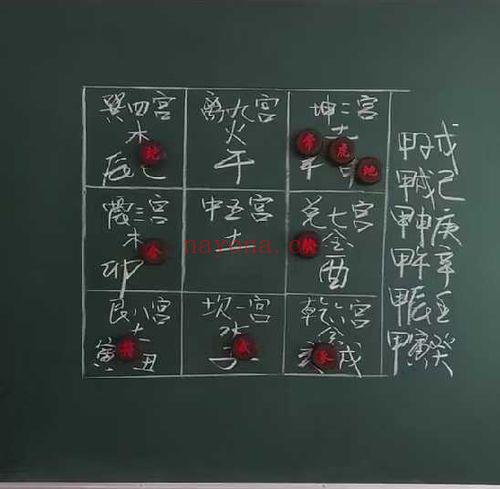 巽四宫
木
辰 蛇 巳
离九宫
火
午
坤二宫
土
常 虎 地
申
震三宫
木
合
卯
中五宫
土
兑七宫
金
酉
艮八宫
土
寅 丑
坎一宫
水
子 武
乾六宫
金
戌
甲子戊
甲戌己
甲申庚
甲午辛
甲辰壬
甲寅癸
nayona.cn